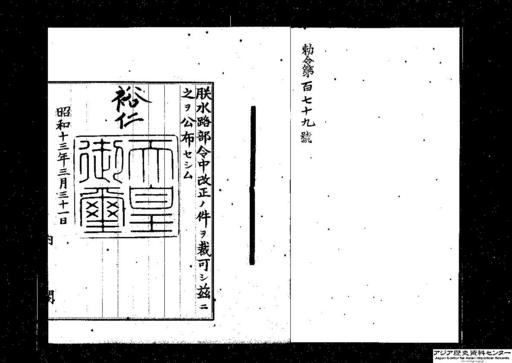 勅令第百七十九號
朕水路部令中改正ノ件ヲ裁可シ茲ニ
之ヲ公布セシム
裕仁
天皇御璽
昭和十三年三月三十一日
内閣
アジア歴史資料センター
Japan Center for Asian Historical Records